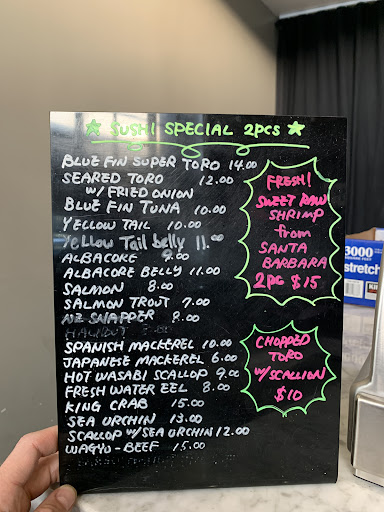 ★ SUSHI SPECIAL 2PCS ★
BLUE FIN SUPER TORO 14.00
SEARED TORO 12.00
W/ FRIED ONION
BLUE FIN TUNA 10.00
YELLOW TAIL 10.00
Yellow Tail belly 11.00
ALBACORE 9.00
ALBACORE BELLY 11.00
SALMON 8.00
SALMON TROUT 7.00
NZ SNAPPER 8.00
HALIBUT 8.00
SPANISH MACKEREL 10.00
JAPANESE MACKEREL 6.00
HOT WASABI SCALLOP 9.00
FRESH WATER EEL 8.00
KING CRAB 15.00
SEA URCHIN 13.00
SCALLOP W/ SEA URCHIN 12.00
WAGYU - BEEF 15.00
FRESH!
SWEET RAW
SHRIMP
from
SANTA
BARBARA
2PC $15
CHOPPED
TORO
W/ SCALLION
$10
3000
stretch